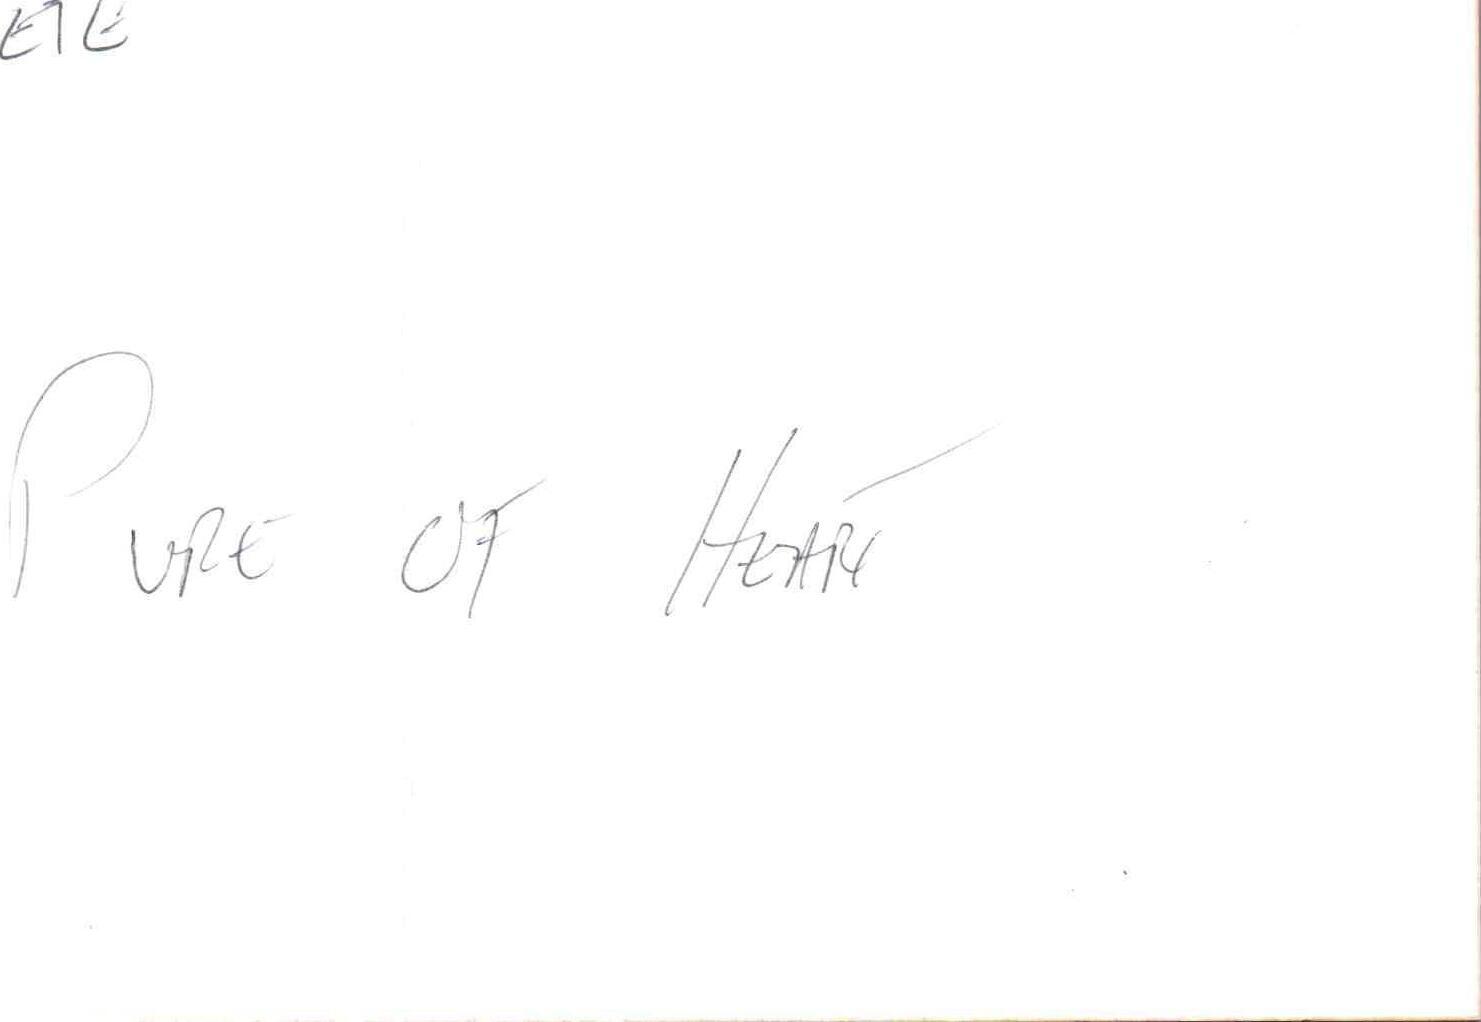 ETE
PURE OF HEART